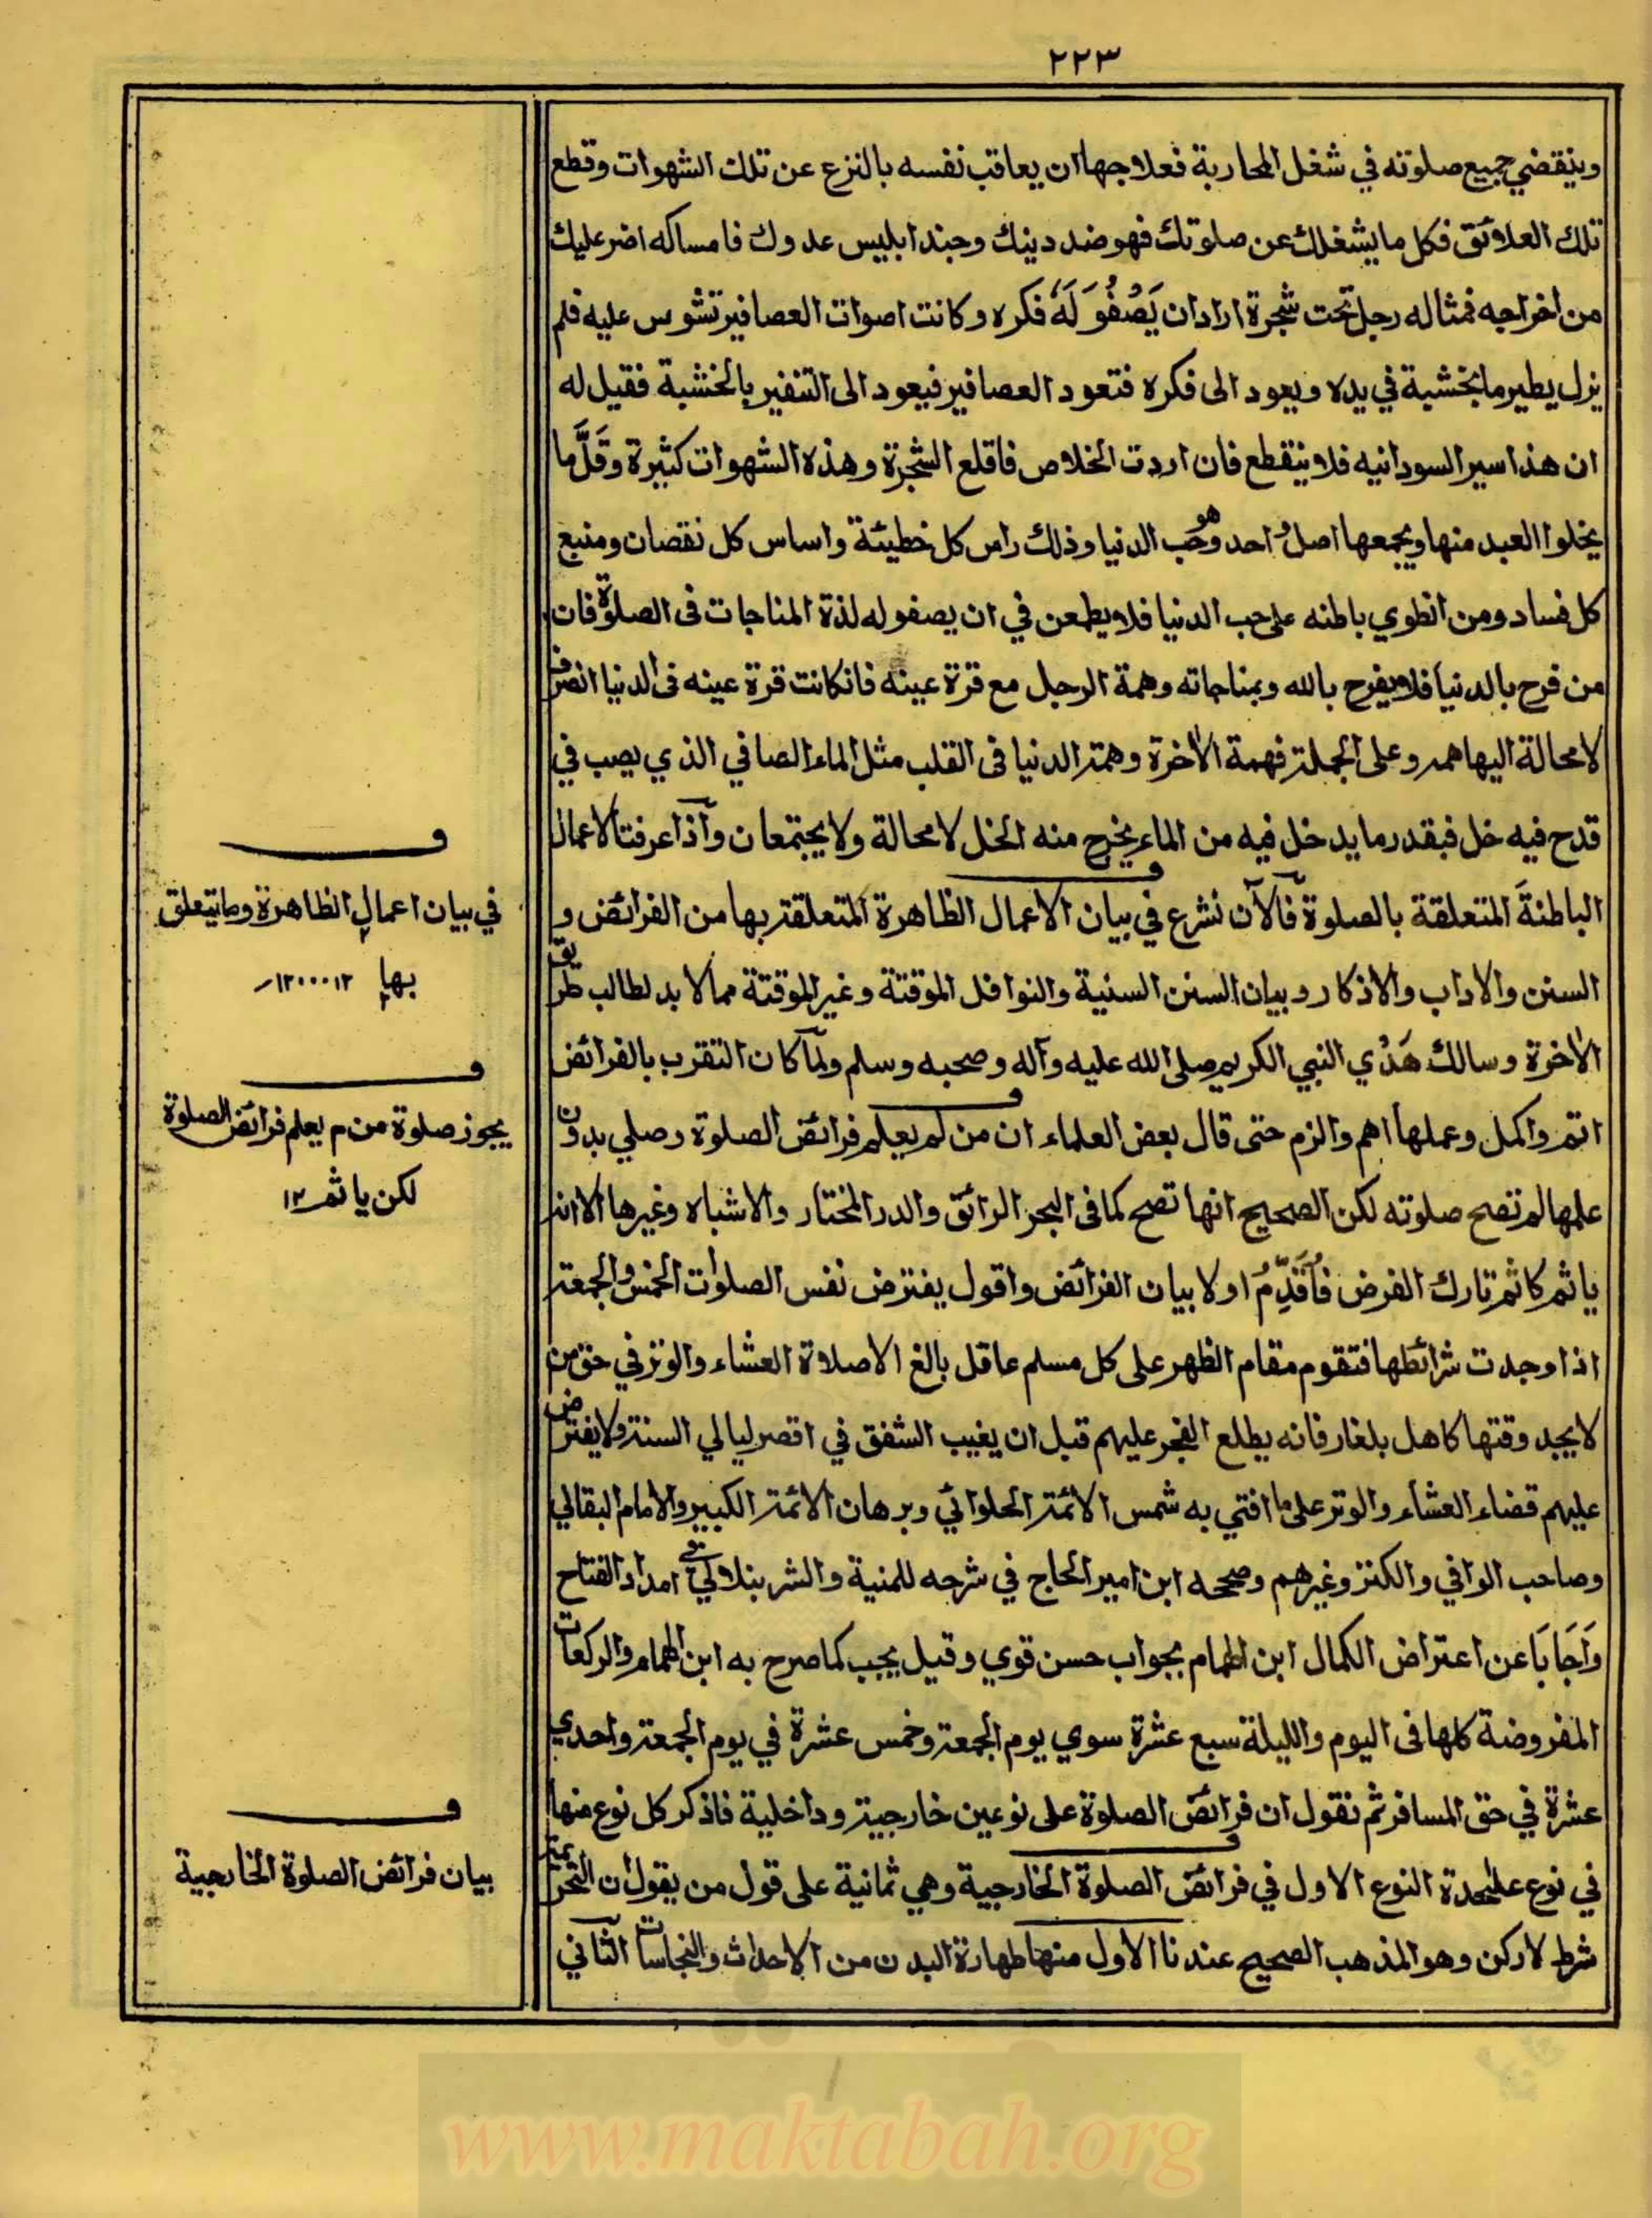 ٢٢٣
وينقضي جميع صلوته في شغل المحاربة فعلاجها ان يعاقب نفسه بالنزع عن تلك الشهوات وقطع
تلك العلائق فكل ما يشغلك عن صلوتك فهو ضد دينك وجند ابليس عدوك فامساكه اضر عليك
من اخراجه فمثاله رجل تحت شجرة اراد ان يَصْفُوَ لَهُ فكره وكانت اصوات العصافير تشوس عليه فلم
يزل يطيرما بخشبة في يده ويعود الى فكره فتعود العصافير فيعود الى التنفير بالخشبة فقيل له
ان هذا سير السودانيه فلا ينقطع فان اردت الخلاص فاقلع الشجرة وهذه الشهوات كثيرة وقَلَّما
يخلوا العبد منها ويجمعها اصل واحد وهو حُب الدنيا وذلك راس كل خطيئة واساس كل نقصان ومنبع
كل فساد ومن انطوي باطنه على حب الدنيا فلا يطمعن في ان يصفو له لذة المناجات فى الصلوة فان
من فرح بالدنيا فلا يفرح بالله وبمناجاته وهمة الرجل مع قرة عينه فانكانت قرة عينه فى الدنيا انصرف
لا محالة اليها همه وعلى الجملة فهمة الاٰخرة وهمة الدنيا فى القلب مثل الماء الصافي الذي يصب في
قدح فيه خل فبقدر ما يدخل فيه من الماء يخرج منه الخل لا محالة ولا يجتمعان وآذا عرفت الاعمال
الباطنةَ المتعلقة بالصلوة فآلآن نشرع في بيان الاعمال الظاهرة المتعلقة بها من الفرائض و
السنن والاداب والاذكار وبيان السنن السنية والنوافل الموقتة وغير الموقتة مما لا بد لطالب طريق
الاٰخرة وسالك هَدْي النبي الكريم صلى الله عليه وآله وصحبه وسلم ولمّا كان التقرب بالفرائض
اتم واكمل وعملها اهم والزم حتى قال بعض العلماء ان من لم يعلم فرائض الصلوة وصلي بدون
علمها لم تصح صلوته لكن الصحيح انها تصح كما فى البحر الرائق والدر المختار والاشباه وغيرها الا انه
ياثم كاثم تارك الفرض فأُقَدِّمُ اولا بيان الفرائض واقول يفترض نفس الصلوات الخمس والجمعة
اذا وجدت شرائطها فتقوم مقام الظهر على كل مسلم عاقل بالغ الا صلاة العشاء والوتر في حق من
لا يجد وقتها كاهل بلغار فانه يطلع الفجر عليهم قبل ان يغيب الشفق في اقصر ليالي السنة ولا يفترض
عليهم قضاء العشاء والوتر على ما افتي به شمس الائمة الحلوائي وبرهان الائمة الكبير والامام البقالي
وصاحب الوافي والكنز وغيرهم وصححه ابن امير الحاج في شرحه للمنية والشرنبلالي في امداد الفتاح
وَاَجَابَا عن اعتراض الكمال ابن الهمام بجواب حسن قوي وقيل يجب كما صرح به ابن الهمام والركعات
المفروضة كلها فى اليوم والليلة سبع عشرة سوي يوم الجمعة وخمس عشرة في يوم الجمعة واحدي
عشرة في حق المسافر ثم نقول ان فرائض الصلوة على نوعين خارجية وداخلية فاذكر كل نوع منها
في نوع عليٰحدة النوع الاول في فرائض الصلوة الخارجية وهي ثمانية على قول من يقول ان التحريمة
شرط لا ركن وهو المذهب الصحيح عندنا الاول منها طهارة البدن من الاحداث والنجاسات الثاني
فــ
في بيان اعمال الظاهرة وما يتعلق
بها ١٢
فــ
يجوز صلوة من م يعلم فرائض الصلوة
لكن ياثم ١٢
فــ
بيان فرائض الصلوة الخارجية
www.maktabah.org